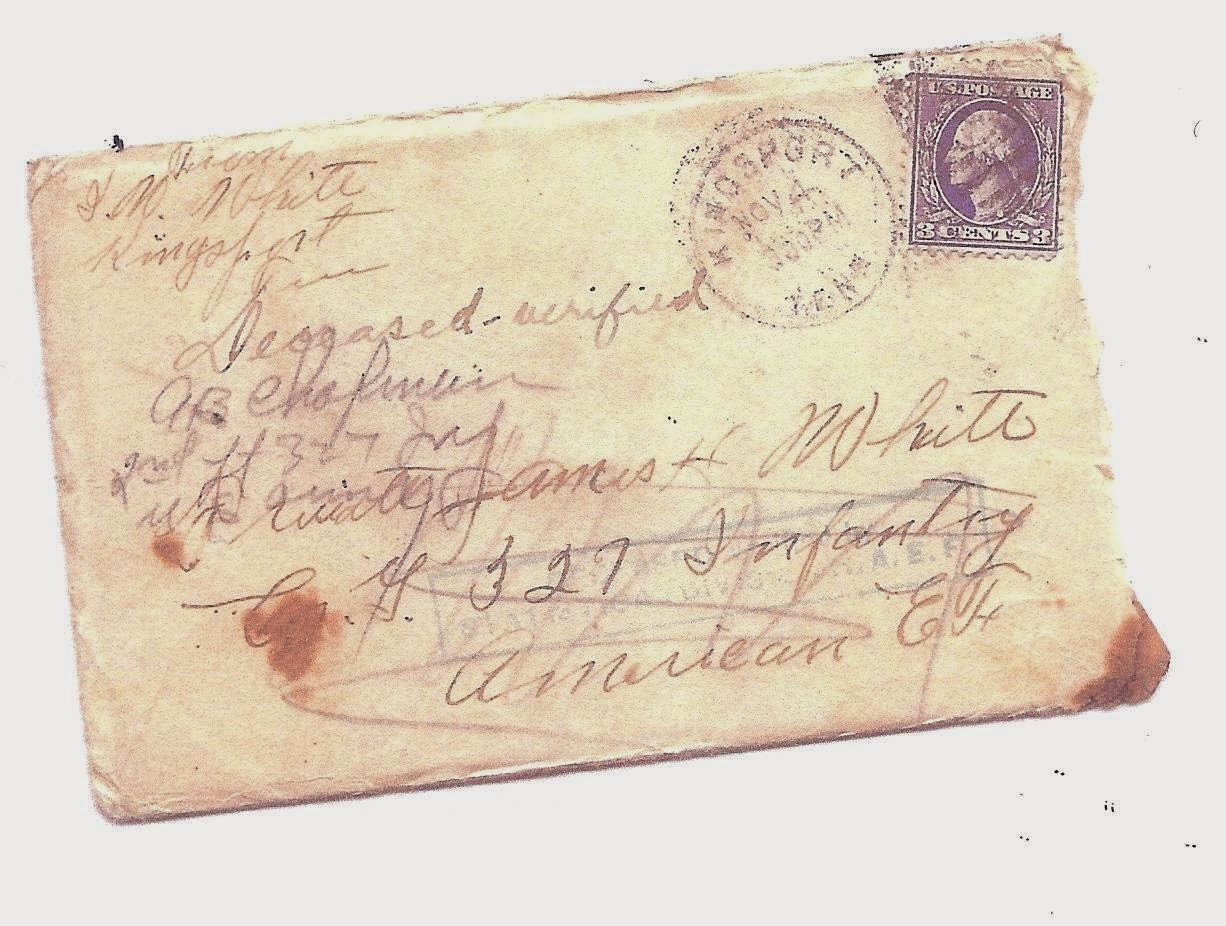 From
J. N. White
Kingsport
Tenn
KINGSPORT
NOV 4
30 PM
TENN
U.S. POSTAGE
3 CENTS 3
Deceased - verified
Chapman
2nd Lt 327 Inf
James H White
Co. G. 327 Infantry
American E F
A.E.F.